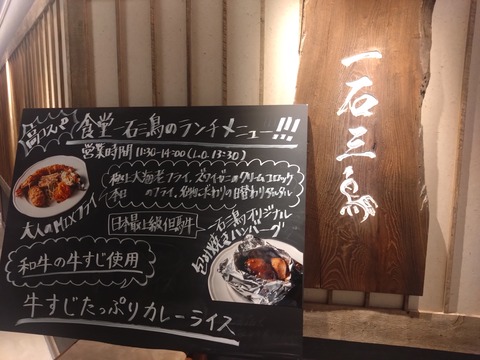 高コスパ
食堂一石三鳥のランチメニュー!!!
営業時間 11:30-14:00 (L.O. 13:30)
極上大海老フライ、ズワイガニのクリームコロッケ
本日のフライ、名物こだわりの日替わりタルタル
大人のMIXフライ
日本最上級但馬牛
一石三鳥オリジナル
包み焼きハンバーグ
和牛の牛すじ使用
牛すじたっぷりカレーライス
一石三鳥